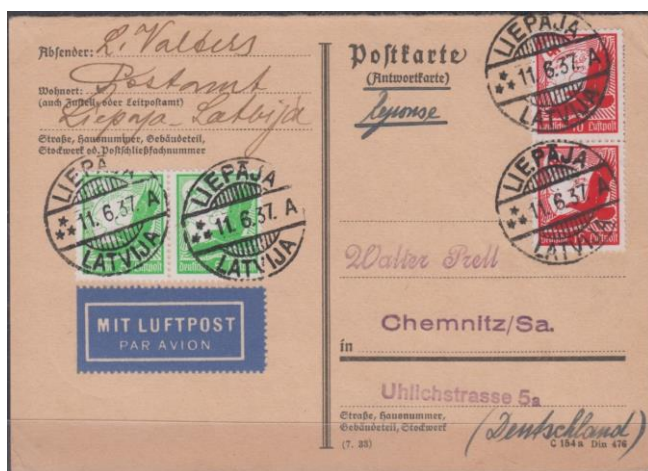 Absender: L. Valters
Postamt
Wohnort:
(auch Zustell- oder Leitpostamt)
Liepaja-Latvija
Straße, Hausnummer, Gebäudeteil,
Stockwerk od. Postschließfachnummer
LIEPĀJA
11.6.37. A
LATVIJA
Luftpost
LIEPĀJA
11.6.37. A
LATVIJA
Luftpost
MIT LUFTPOST
PAR AVION
Postkarte
(Antwortkarte)
Reponse
LIEPĀJA
11.6.37. A
LATVIJA
Luftpost
LIEPĀJA
11.6.37. A
LATVIJA
Luftpost
Walter Prell
Chemnitz/Sa.
in
Uhlichstrasse 5a
Straße, Hausnummer,
Gebäudeteil, Stockwerk
(Deutschland)
(7. 35)
C 154a Din 476